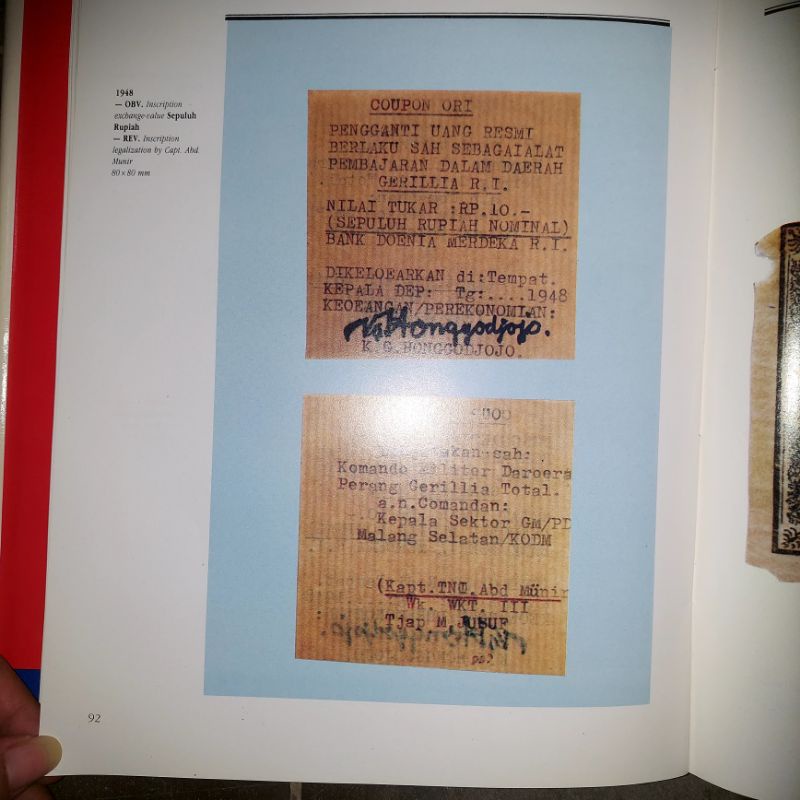 1948
— OBV. Inscription
exchange-value Sepuluh
Rupiah
— REV. Inscription
legalization by Capt. Abd.
Munir
80 x 80 mm
COUPON ORI
PENGGANTI UANG RESMI
BERLAKU SAH SEBAGAIALAT
PEMBAJARAN DALAM DAERAH
GERILLIA R.I.
NILAI TUKAR :RP.10.-
(SEPULUH RUPIAH NOMINAL)
BANK DOENIA MERDEKA R.I.
DIKELOEARKAN di:Tempat.
KEPALA DEP: Tg:....1948
KEOEANGAN/PEREKONOMIAN:
Honggodjojo.
K.S.HONGGODJOJO.
sah:
Komando Militer Daroera
Perang Gerillia Total.
a.n.Comandan:
Kepala Sektor GM/PD
Malang Selatan/KODM
(Kapt.TNI.Abd Münir
Wk. WKT. III
Tjap M JUSUF
92